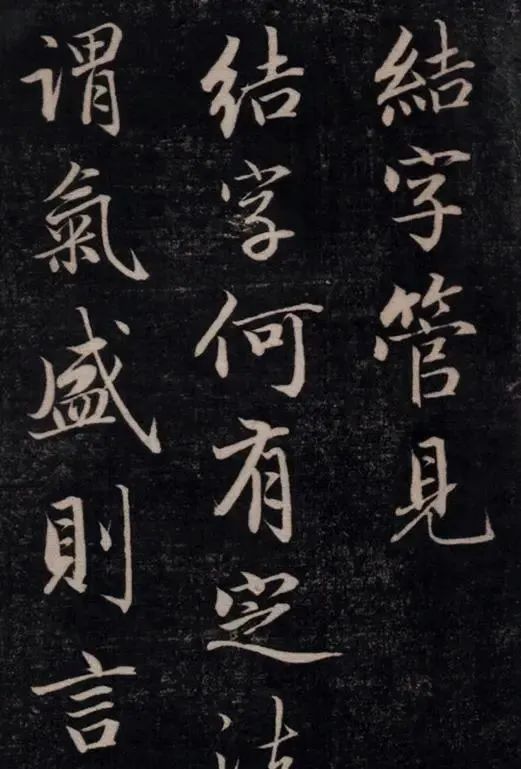 結字管見
結字何有定法
謂氣盛則言